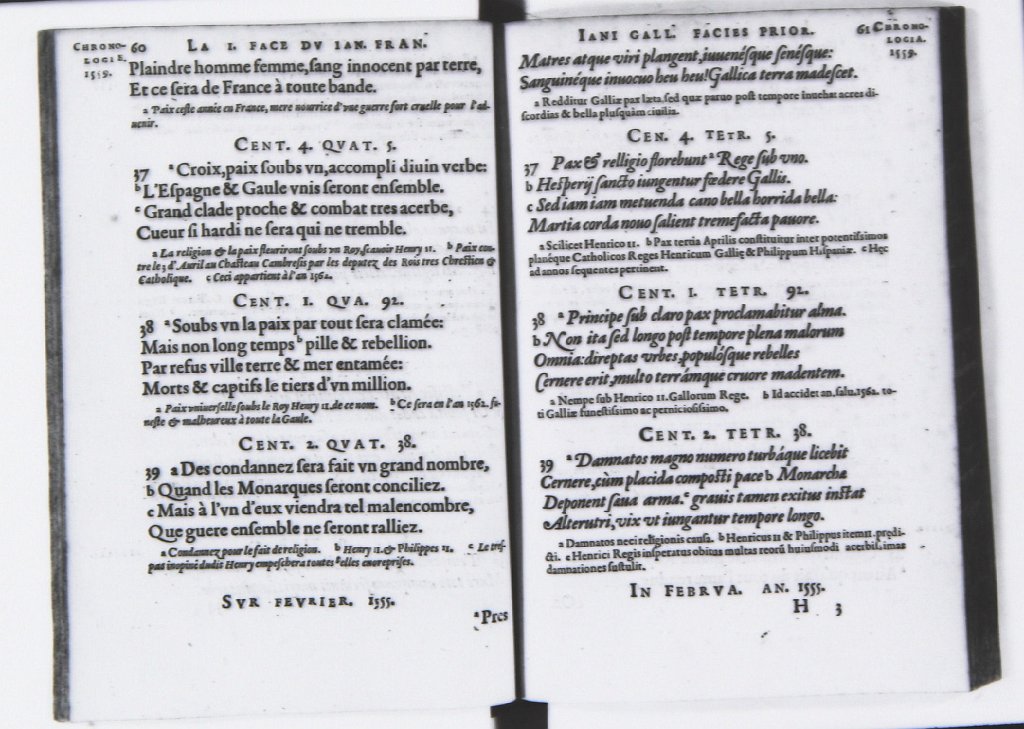 CHRONO-
LOGIE.
1559.
60
LA I. FACE DV IAN. FRAN.
Plaindre homme femme, sang innocent par terre,
Et ce sera de France à toute bande.
a Paix ceste année en France, mere nourrice d'vne guerre fort cruelle pour l'ad-
uenir.
CENT. 4. QVAT. 5.
37 a Croix, paix soubs vn, accompli diuin verbe:
b L'Espagne & Gaule vnis seront ensemble.
c Grand clade proche & combat tres acerbe,
Cueur si hardi ne sera qui ne tremble.
a La religion & la paix fleuriront soubs vn Roy, sçauoir Henry II. b Paix con-
tre le 3 d'Auril au Chasteau Cambresis par les deputez des Rois tres Chrestien &
Catholique. c Ceci appartient à l'an 1562.
CENT. 1. QVA. 92.
38 a Soubs vn la paix par tout sera clamée:
Mais non long temps b pille & rebellion.
Par refus ville terre & mer entamée:
Morts & captifs le tiers d'vn million.
a Paix vniuerselle soubs le Roy Henry II. de ce nom. b Ce sera en l'an 1562. fu-
neste & malheureux à toute la Gaule.
CENT. 2. QVAT. 38.
39 a Des condannez sera fait vn grand nombre,
b Quand les Monarques seront conciliez.
c Mais à l'vn d'eux viendra tel malencombre,
Que guere ensemble ne seront ralliez.
a Condannez pour le fait de religion. b Henry II. & Philippes II. c Le tres-
pas inopiné dudis Henry empeschera toutes telles entreprises.
SVR FEVRIER. 1555.
a Pres
IANI GALL. FACIES PRIOR.
61
CHRONO-
LOGIA.
1559.
Matres atque viri plangent, iuuenésque senésque:
Sanguinéque inuocuo heu heu! Gallica terra madescet.
a Redditur Galliæ pax læta. sed quæ paruo post tempore inuehat acres di-
scordias & bella plusquàm ciuilia.
CEN. 4. TETR. 5.
37 Pax & relligio florebunt a Rege sub vno.
b Hesperij sancto iungentur fœdere Gallis.
c Sed iam iam metuenda cano bella horrida bella:
Martia corda nouo salient tremefacta pauore.
a Scilicet Henrico II. b Pax tertia Aprilis constituitur inter potentissimos
planéque Catholicos Reges Henricum Gallię & Philippum Hispaniæ. c Hęc
ad annos sequentes pertinent.
CENT. 1. TETR. 92.
38 a Principe sub claro pax proclamabitur alma.
b Non ita sed longo post tempore plena malorum
Omnia: direptas vrbes, populósque rebelles
Cernere erit, multo terrámque cruore madentem.
a Nempe sub Henrico II. Gallorum Rege. b Id accidet an. salu. 1562. to-
ti Galliæ funestissimo ac perniciosissimo.
CENT. 2. TETR. 38.
39 a Damnatos magno numero turbáque licebit
Cernere, cùm placida composti pace b Monarcha
Deponent sæua arma. c grauis tamen exitus instat
Alterutri, vix vt iungantur tempore longo.
a Damnatos neci religionis causa. b Henricus II & Philippus item II. prædi-
cti. c Henrici Regis insperatus obitus multas reorū huiusmodi acerbissimas
damnationes sustulit.
IN FEBRVA. AN. 1555.
H 3